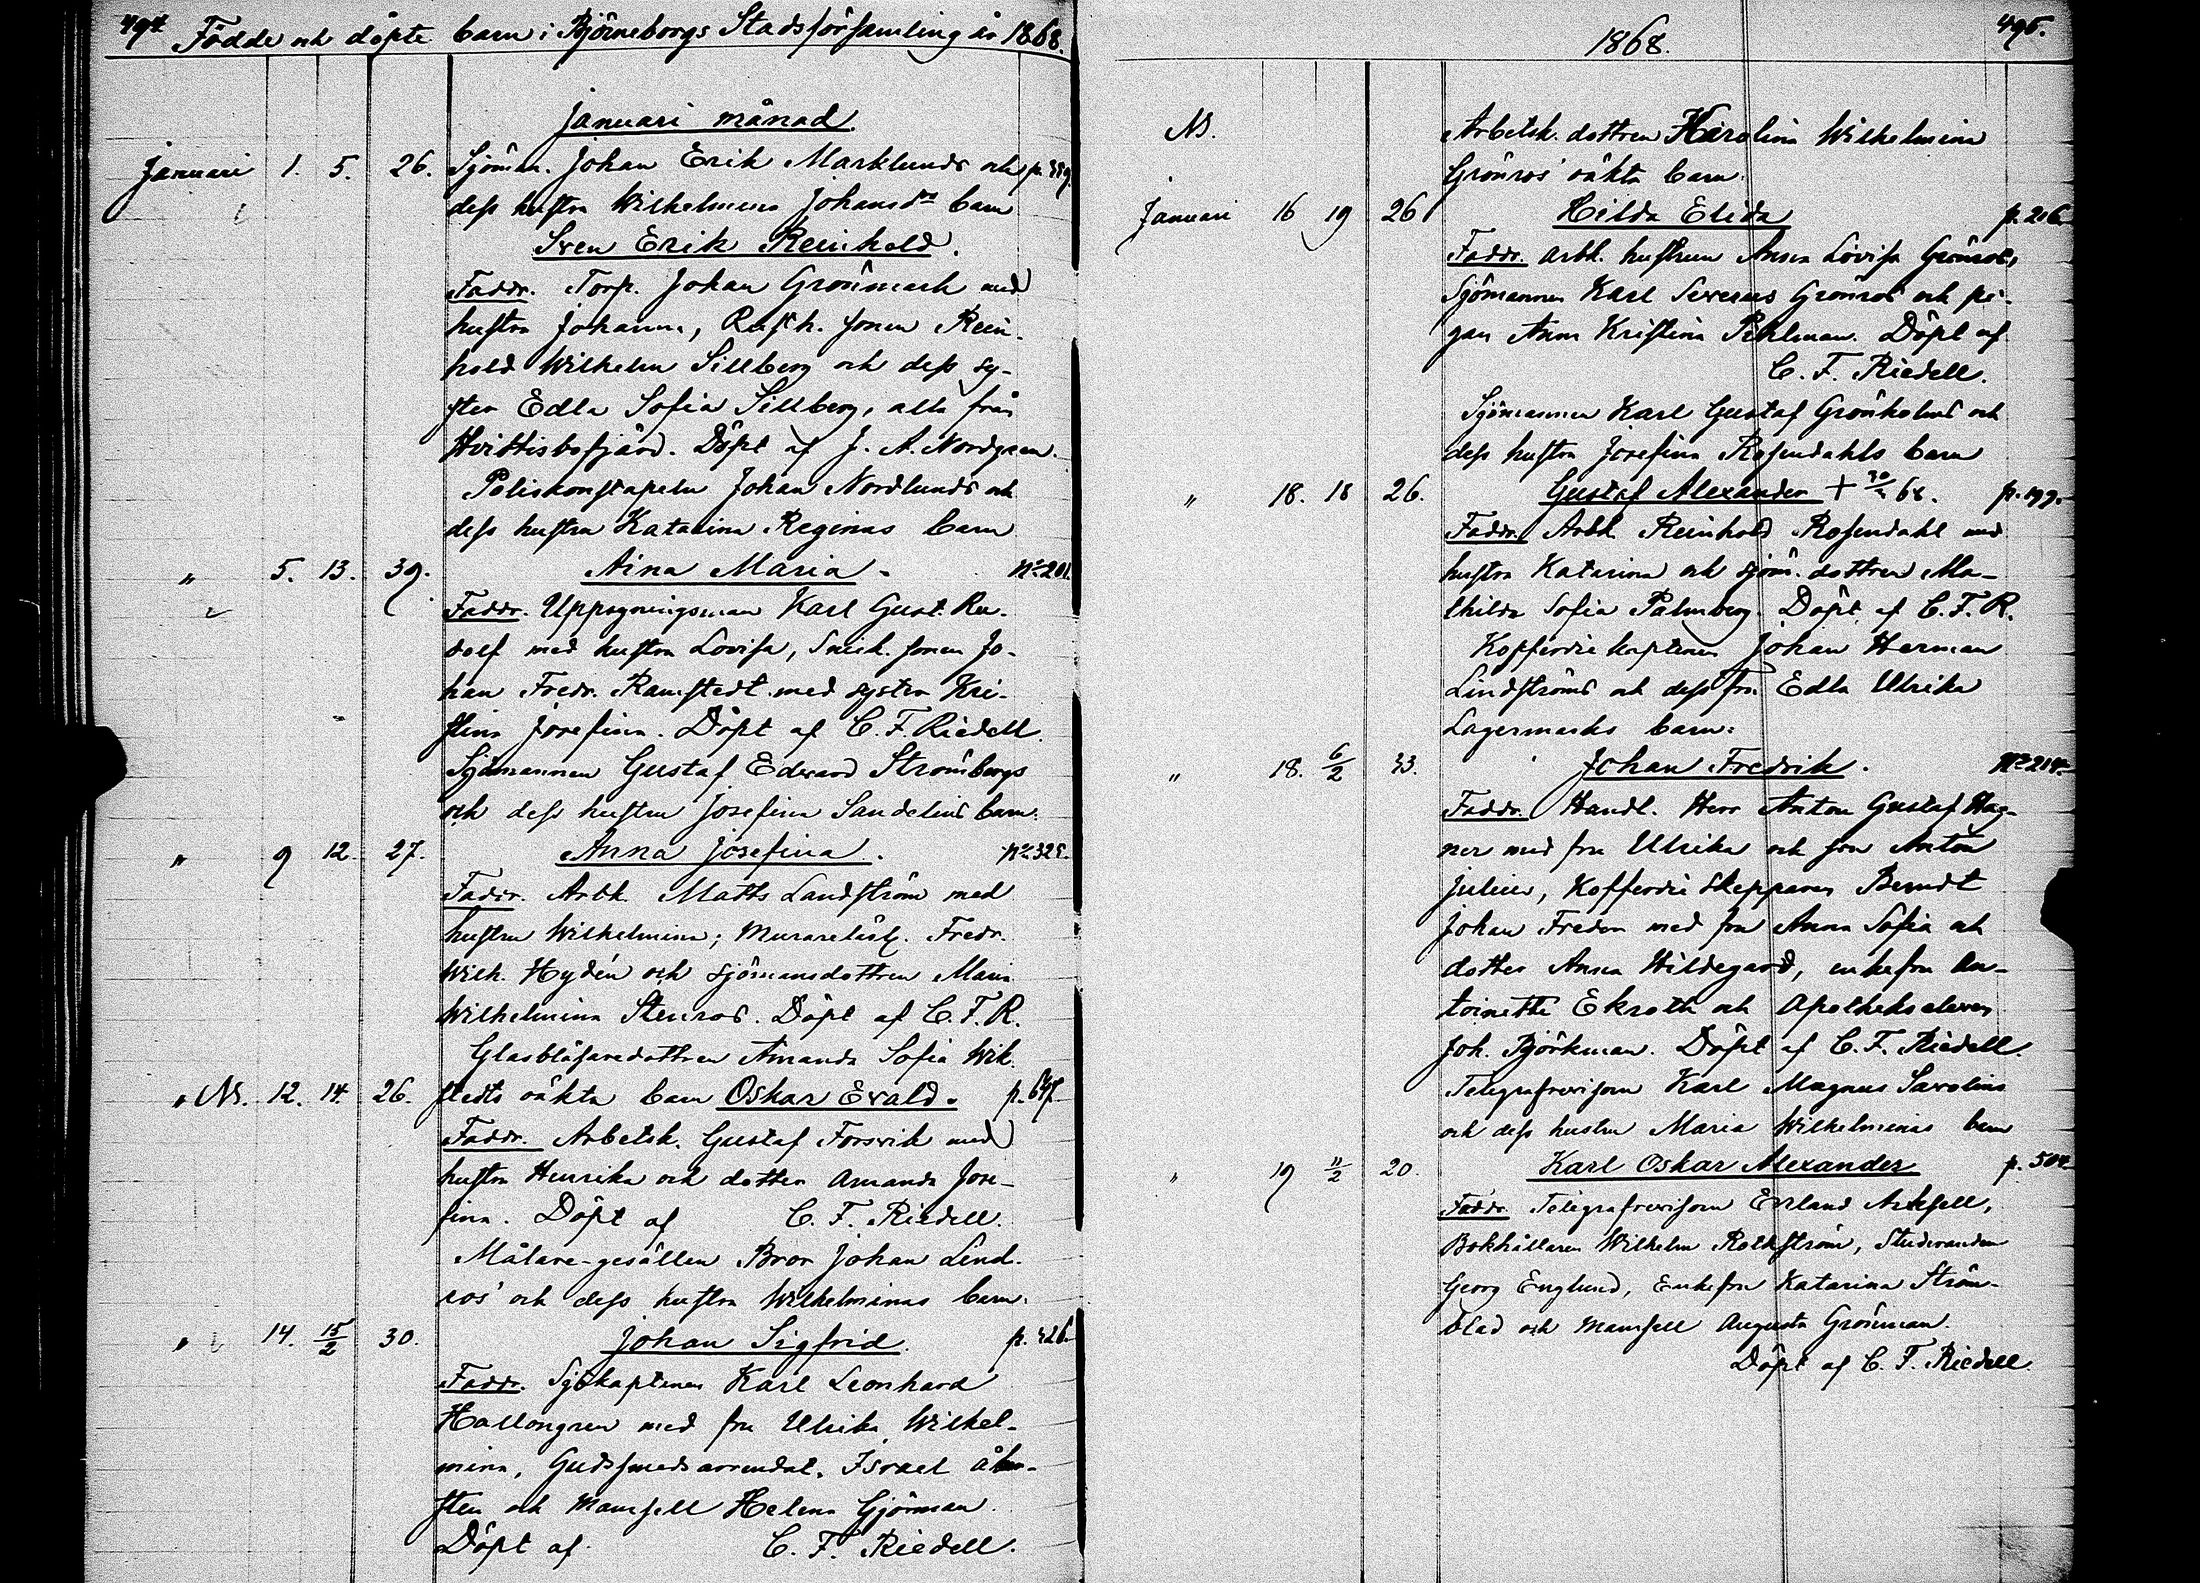 494 Födde och döpte barn i Björneborgs Stadsförsamling år 1868.
Januari månad.
Januari 1. 5. 26. Sjöman. Johan Erik Marklunds och
dess hustru Wilhelmina Johansdr barn
Sven Erik Reinhold.
Faddr. Torp. Johan Grönmark med
hustru Johanna, Rusth. sonen Rein-
hold Wilhelm Sillberg och dess sy-
ster Edla Sofia Sillberg, alla från
Hvittisbofjärd. Döpt af J. A. Nordgren.
Poliskonstapeln Johan Nordlunds och
dess hustru Katarina Reginas barn
" 5. 13. 39. Aina Maria. No 201.
Faddr. Uppsyningsman Karl Gust. Ru-
dolf med hustru Lovisa, Snick. sonen Jo-
han Fredr. Ramstedt med syster Kri-
stina Josefina. Döpt af C. F. Riedell.
Sjömannen Gustaf Edvard Strömbergs
och dess hustru Josefina Sandelius barn.
" 9 12. 27. Anna Josefina. No 325.
Faddr. Arbk. Matts Landström med
hustru Wilhelmina; Murarelärl. Fredr.
Wilh. Hydén och sjömansdottren Maria
Wilhelmina Stenros. Döpt af C. F. R.
Glasblåsaredottren Amanda Sofia Wik-
" Ns. 12. 14. 26. stedts oäkta barn Oskar Evald.
Faddr. Arbetsk. Gustaf Forsvik med
hustru Henrika och dotter Amanda Jose-
fina. Döpt af C. F. Riedell.
Målare-gesällen Bror Johan Lind-
ros' och dess hustru Wilhelminas barn.
" 14. 15/2 30. Johan Sigfrid. p. 426.
Faddr. Sjökaptenen Karl Leonhard
Hallongren med fru Ulrika Wilhel-
mina, Guldsmedsarrendat. Israel
och Mamsell Helena Gjörman.
Döpt af C. F. Riedell.
1868. 495.
Ns. Arbetsk. dottren Karolina Wilhelmina
Grönros' oäkta barn.
Januari 16 19 26 Hilda Elida p. 206.
Faddr. arbk. hustrun Anna Lovisa Grönros,
Sjömannen Karl Severus Grönros och pi-
gan Anna Kristina Pihlman. Döpt af
C. F. Riedell.
Sjömannen Karl Gustaf Grönholms och
dess hustru Josefina Rosendahls barn
" 18. 18 26. Gustaf Alexander p. 199.
Faddr. Arbk Reinhold Rosendahl med
hustru Katarina och sjöm. dottren Ma-
thilda Sofia Palmberg. Döpt af C. F. R.
Kofferdie kaptenen Johan Herman
Lindströms och dess fru Edla Ulrika
Lagermarks barn:
" 18. 6/2 33. Johan Fredrik. No 214.
Faddr. Handl. Herr Anton Gustaf Hag-
ner med fru Ulrika och son Anton
Julius, Kofferdie Skepparen Berndt
Johan Fredon med fru Anna Sofia och
dotter Anna Hildegard, enkefru An-
toinette Ekroth och Apotheks eleven
Joh. Björkman. Döpt af C. F. Riedell.
Telegrafrevisorn Karl Magnus Savolins
och dess hustru Maria Wilhelminas barn
" 19 11/2 20. Karl Oskar Alexander p. 504
Faddr. Telegrafrevisorn Erland
Bokhållaren Wilhelm Rothström, Studeranden
Georg Englund, Enkefru Katarina Ström-
blad och Mamsell Augusta Grönman.
Döpt af C. F. Riedell.